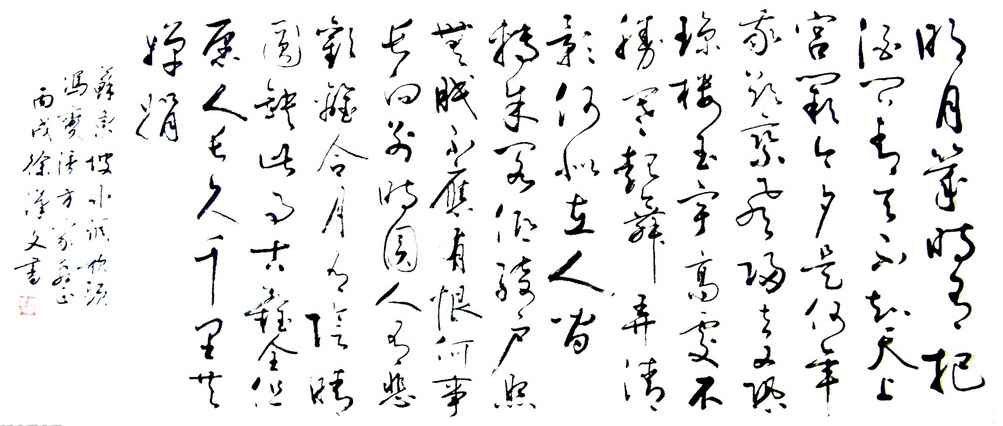 明月幾時有把
酒问青天不知天上
宫阙今夕是何年
我欲乘风歸去又恐
瓊楼玉宇高處不
勝寒起舞弄清
影何似在人间
轉朱阁低绮户照
無眠不應有恨何事
长向别時圆人有悲
歡離合月有陰晴
圆缺此事古難全但
愿人长久千里共
嬋娟
蘇東坡水调歌頭
方家正
丙戌徐漢文書